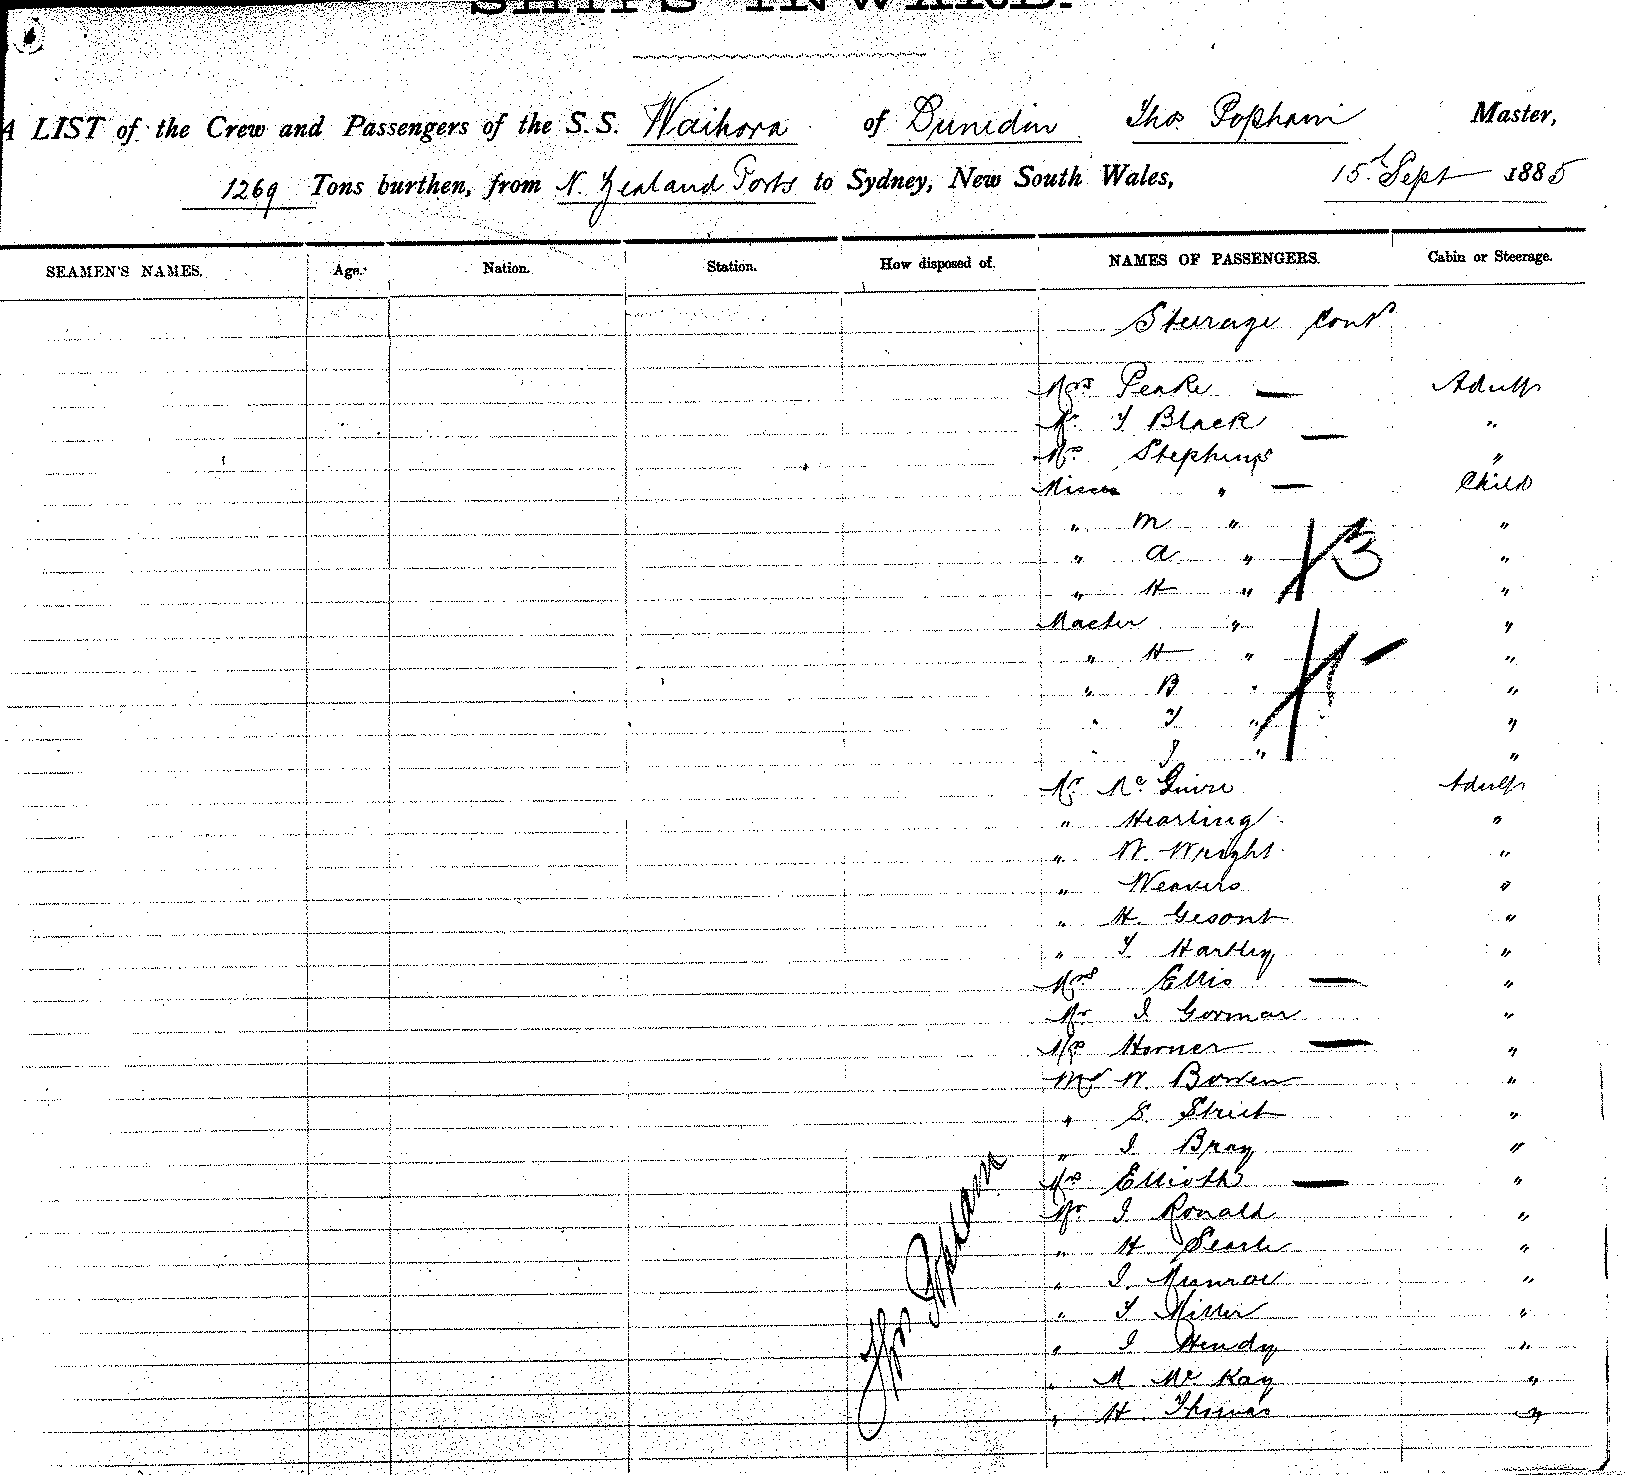 SHIPS INWARD.
A LIST of the Crew and Passengers of the S.S. Waihora of Dunedin Thos Popham Master,
1269 Tons burthen, from N. Zealand Ports to Sydney, New South Wales, 15 Sept 1885
SEAMEN'S NAMES. Age. Nation. Station. How disposed of. NAMES OF PASSENGERS. Cabin or Steerage.
Steerage Cont
Mrs Peake — Adults
Mr T Black "
Mrs Stephens — "
Misses " — Child
" M " "
" A " 3 "
" H " "
Master " "
" H " "
" B " "
" T " "
" J " "
Mr Mc Guire Adults
" Hearting "
" W. Wright "
" Weavers "
" H. Gesont "
" T Hartley "
Mrs Ellis — "
Mr J Gorman "
Mrs Horner — "
Mr W. Bowen "
" S. Street "
" J Bray "
Mrs Elliott — "
Mr J Ronald "
" H Searle "
" J. Munroe "
" T Miller "
" J Hendy "
" M Mc Kay "
" H Thomas "
Thos Popham